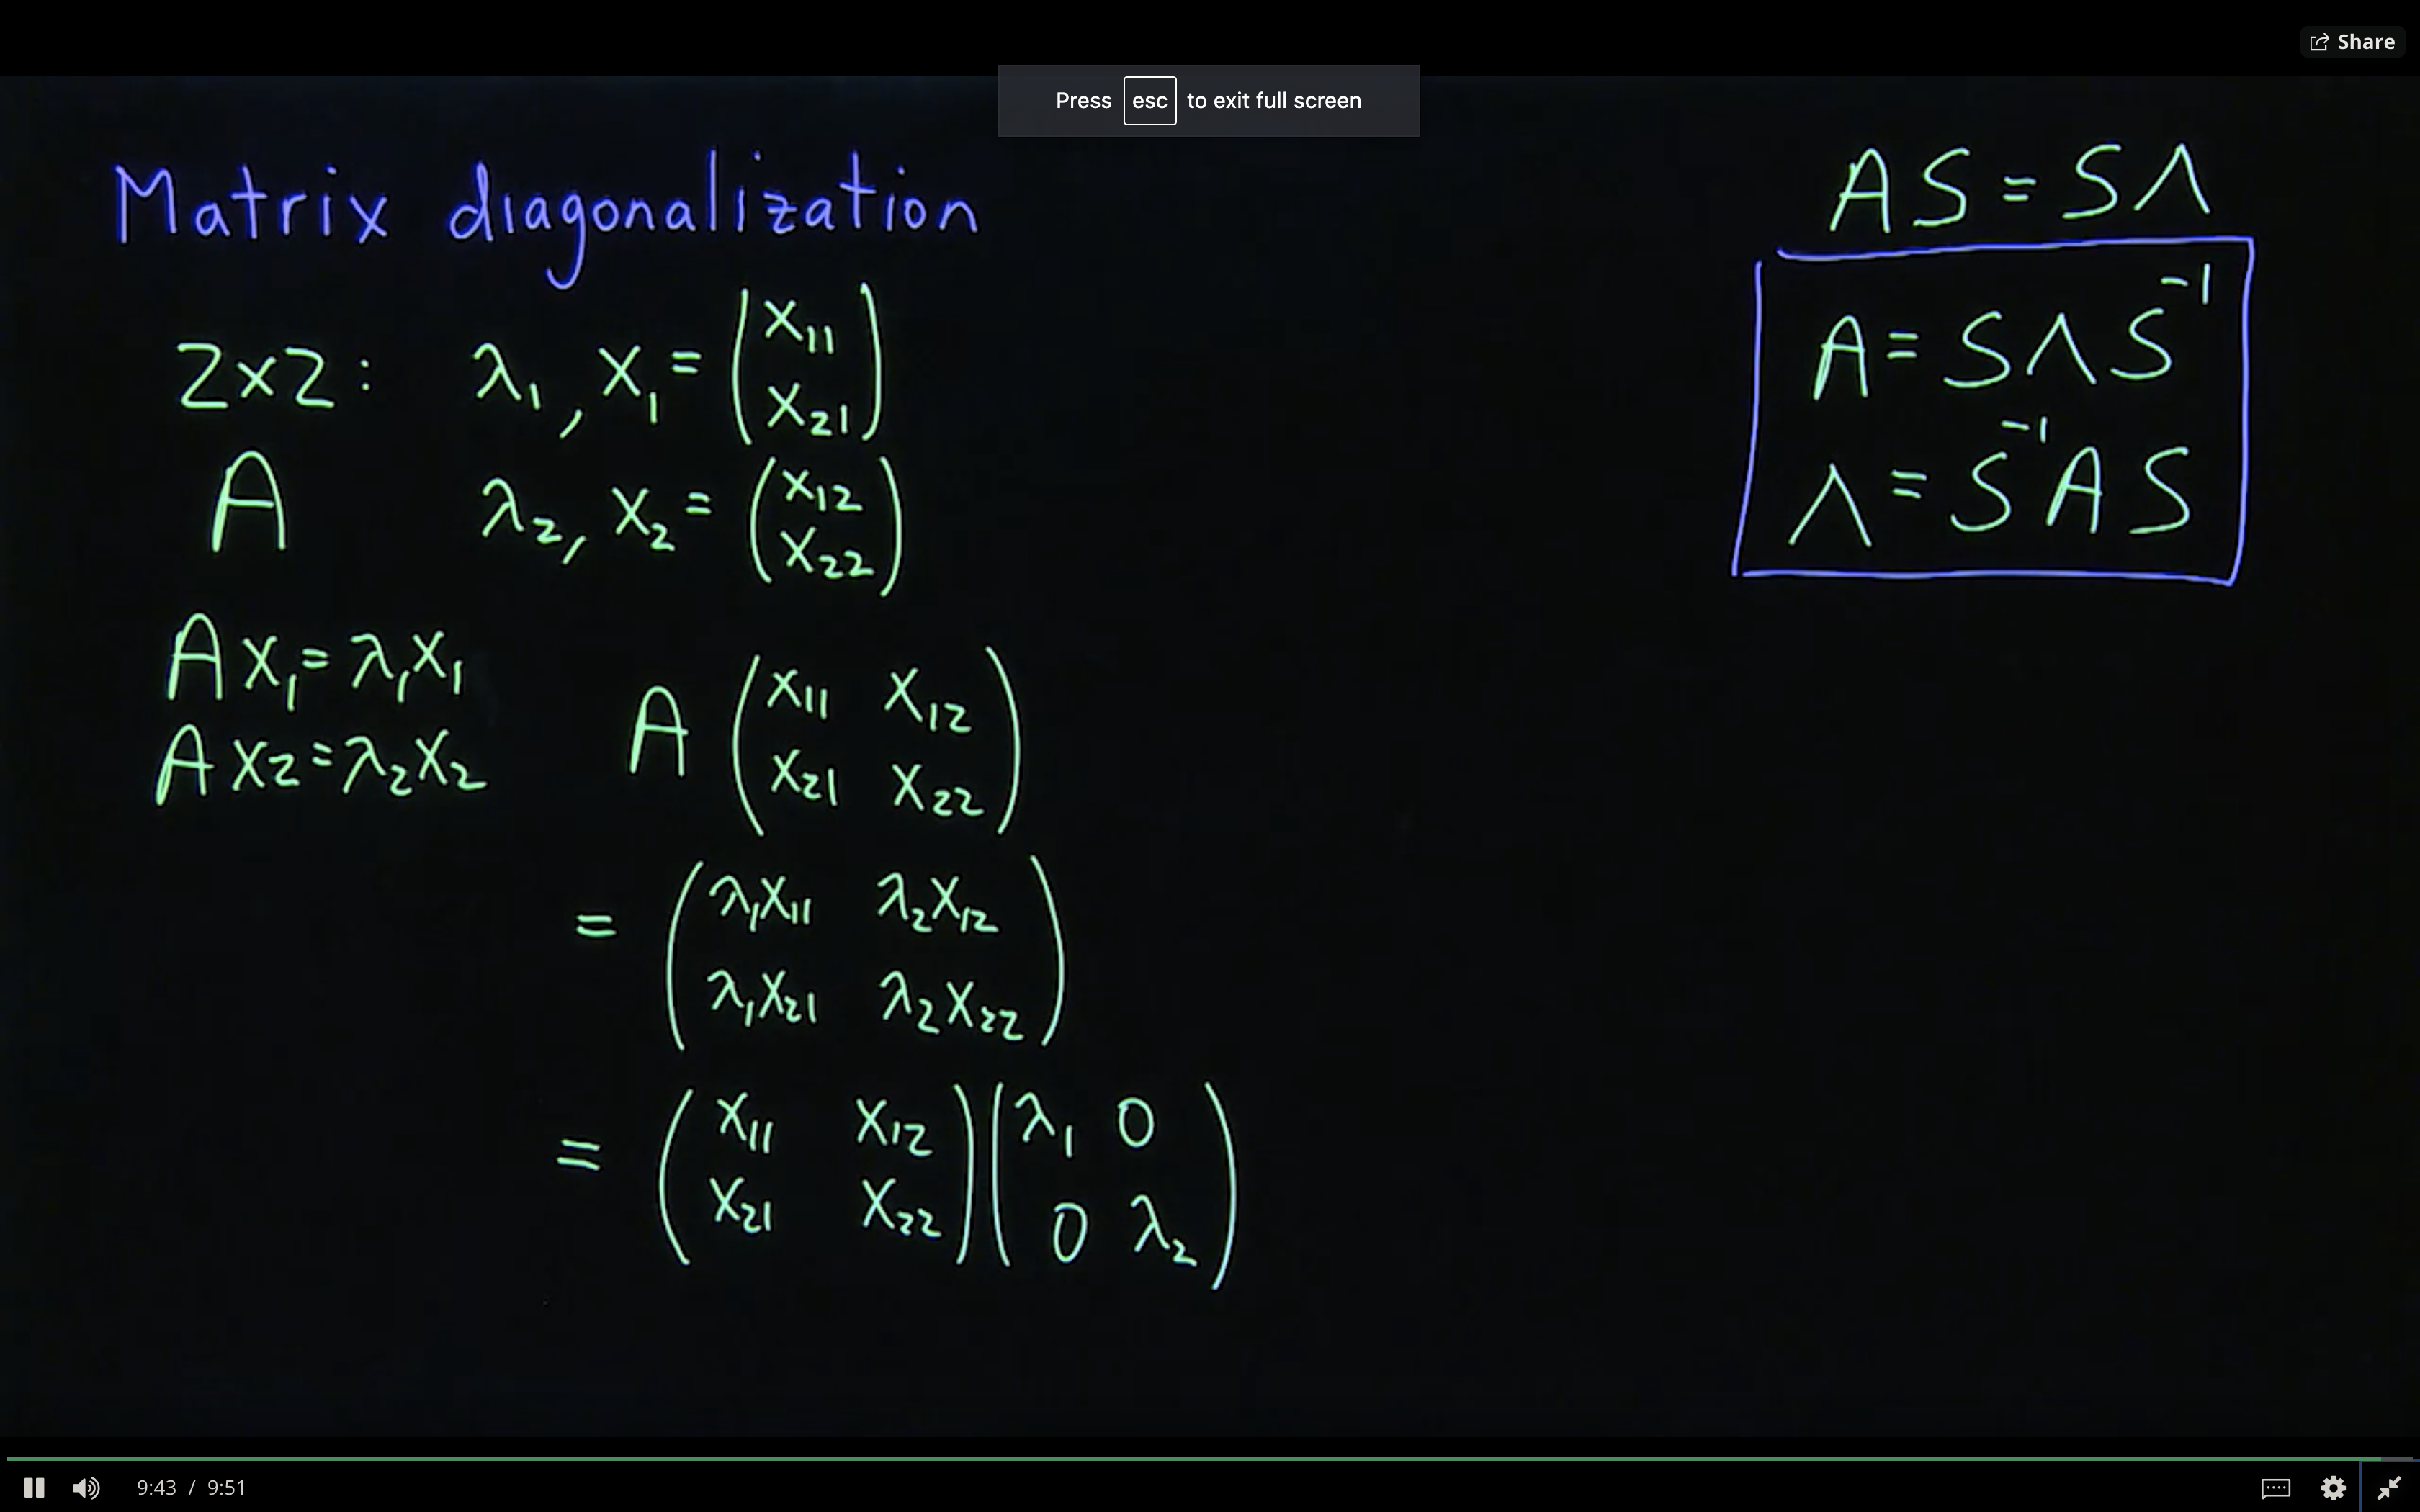 Share
Press esc to exit full screen
Matrix diagonalization
2x2: λ₁, x₁ = (x₁₁
x₂₁)
A λ₂, x₂ = (x₁₂
x₂₂)
Ax₁ = λ₁x₁
Ax₂ = λ₂x₂
A (x₁₁ x₁₂
x₂₁ x₂₂)
= (λ₁x₁₁ λ₂x₁₂
λ₁x₂₁ λ₂x₂₂)
= (x₁₁ x₁₂
x₂₁ x₂₂) (λ₁ 0
0 λ₂)
AS = SΛ
A = SΛS⁻¹
Λ = S⁻¹AS
9:43 / 9:51